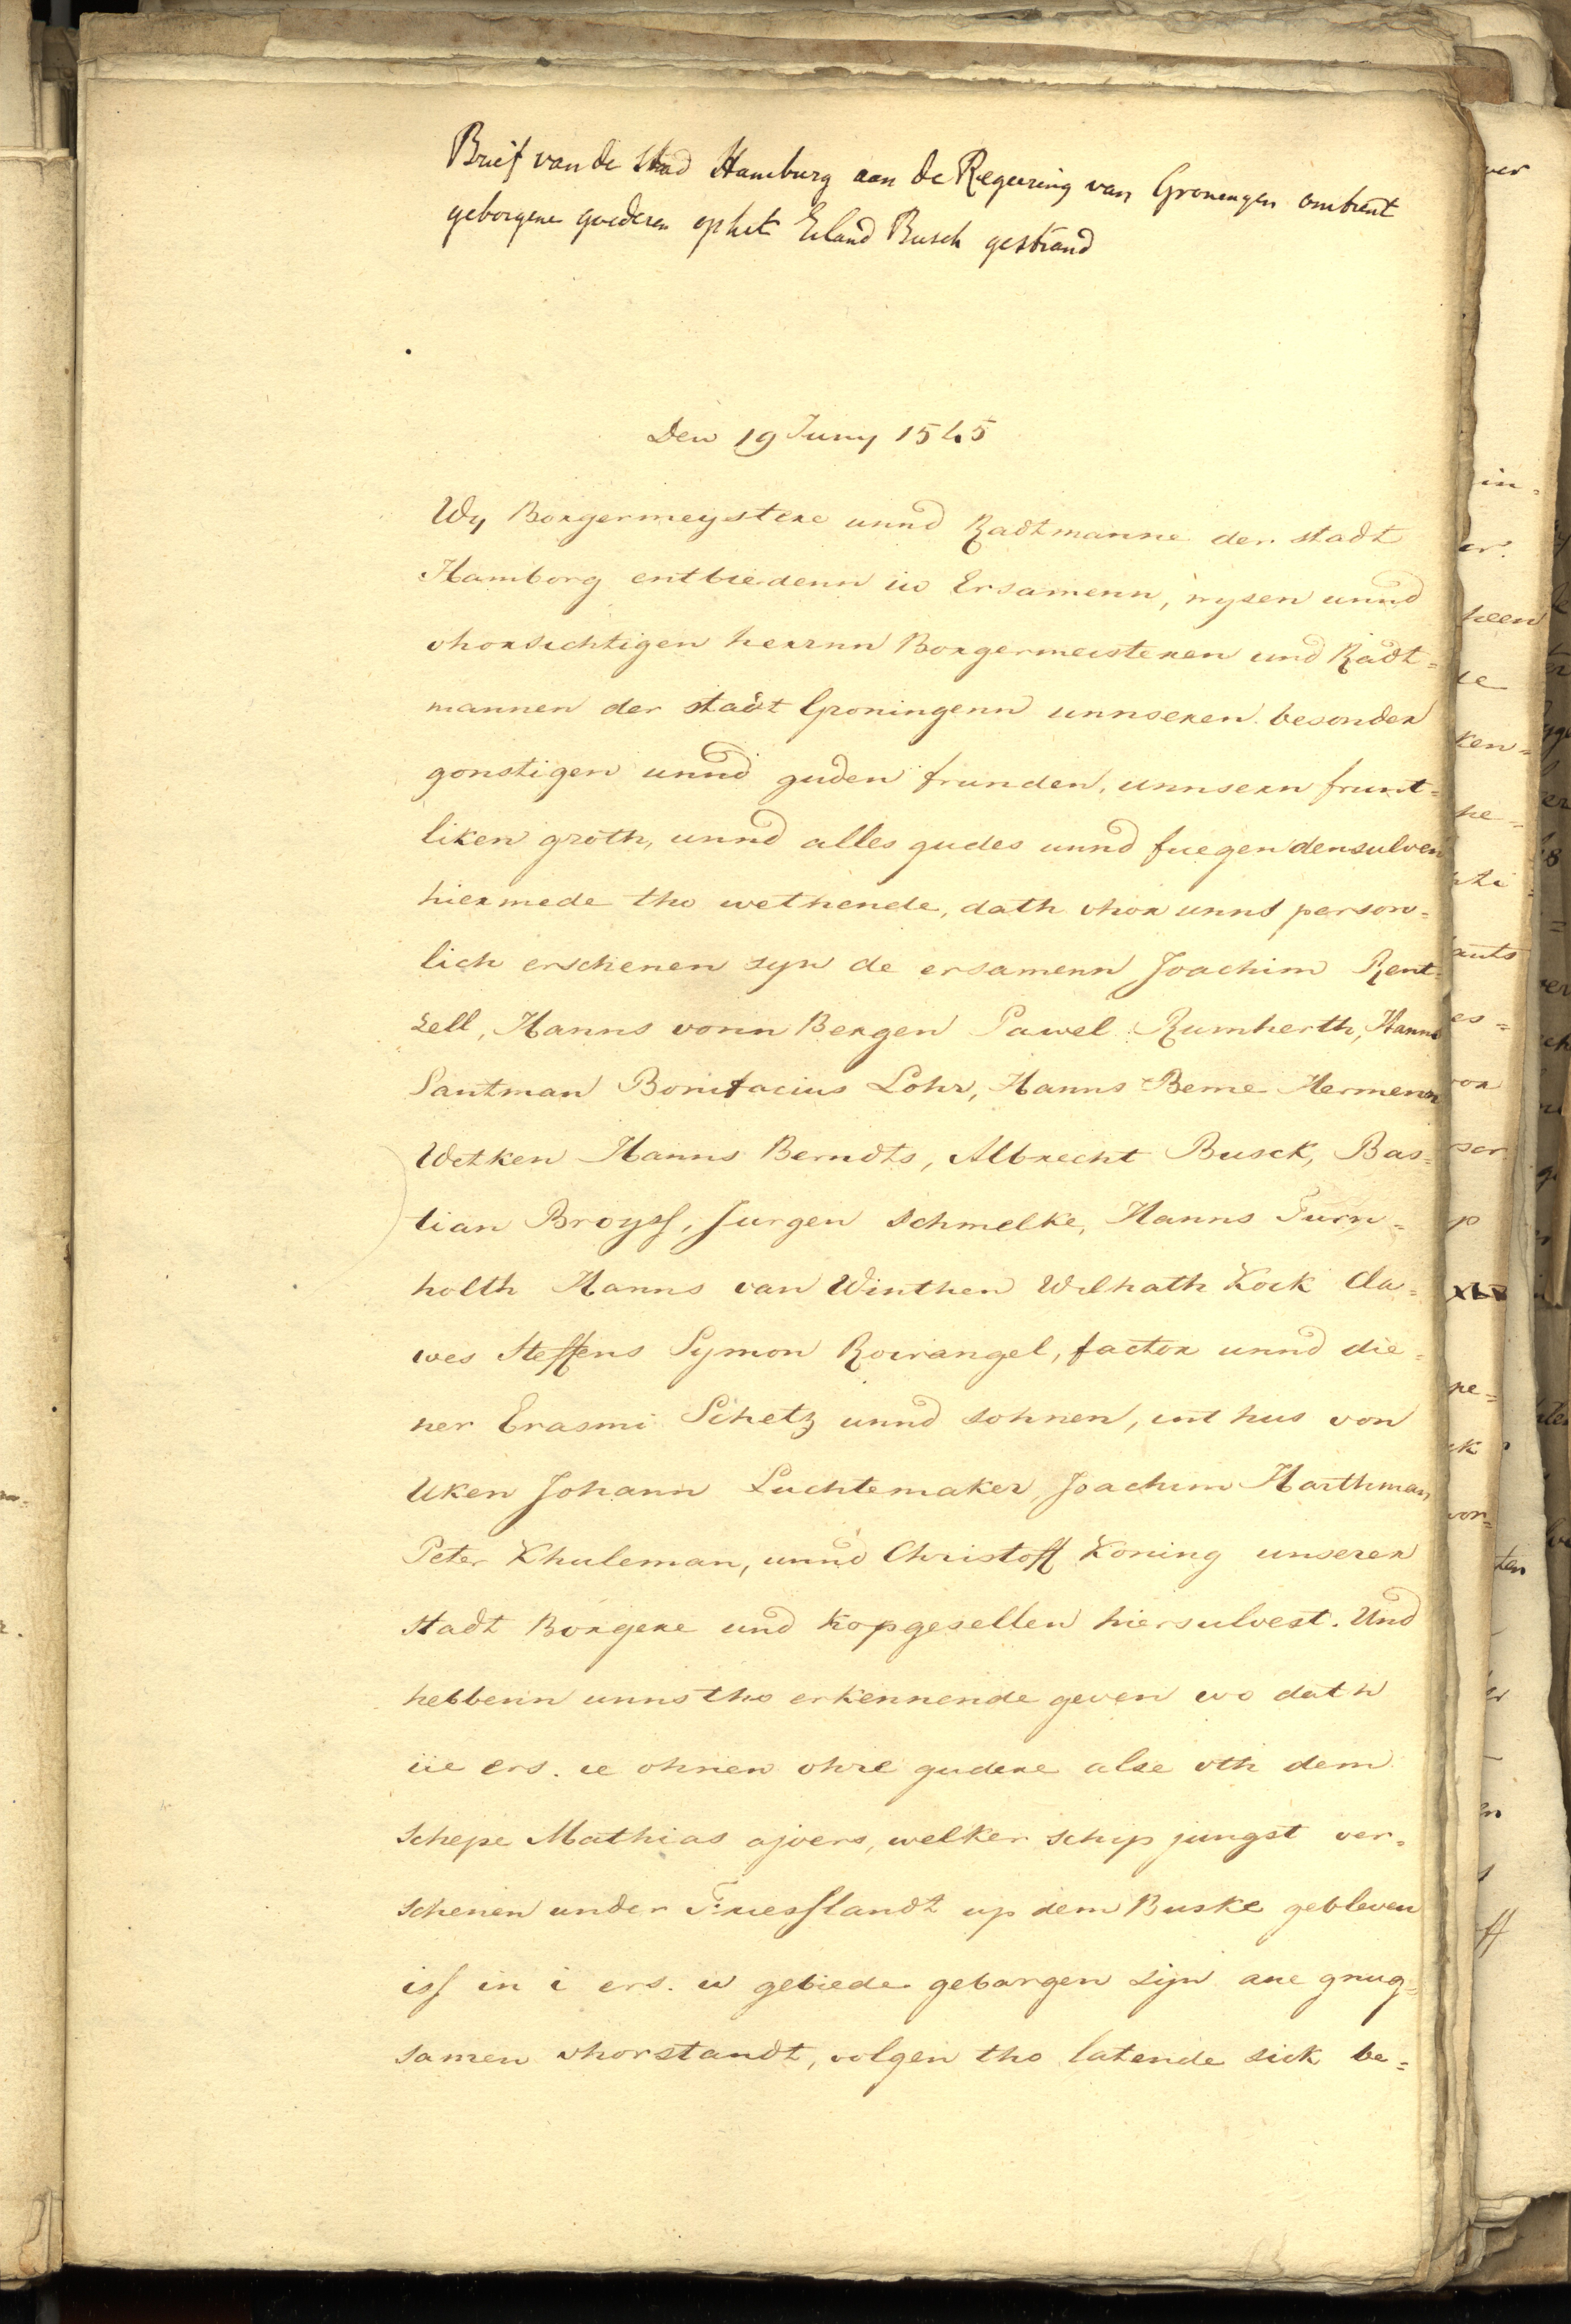 Brief van de Stad Hamburg aan de Regering van Groningen omtrent
geborgene goederen op het Eiland Busch gestrand
Den 19 Juny 1545
Wy Borgermeystere unnd Radtmanne der stadt
Hamborg entbiedenn iw Ersamenn, wysen unnd
vhorsichtigen herrnn Borgermeisteren und Radt=
mannen der stadt Groningenn unnseren besonder
gonstigen unnd guden frunden, unnsern frunt=
liken groth, unnd alles gudes unnd fuegen densulven
hiermede tho wethende, dath vhor unns person=
lich erschenen syn de ersamenn Joachim Rent=
zell, Hanns vonn Bergen Pawel Rumherth, Hanns
Santman Bonifacius Lohr, Hanns Berne Hermenn
Wetken Hanns Berndts, Albrecht Busck, Bas=
tian Broyss, Jurgen Schmelke, Hanns Turn=
holth Hanns van Winthen Wilhath Kock Cla=
wes Steffens Symon Roirangel, factor unnd die=
ner Erasmi Schetz unnd sohnen, unt hus von
Uken Johann Luchtemaker, Joachim Harthman
Peter Khuleman, unnd Christoff Koning unserer
stadt Borgere und kopgesellen hiersulvest. Und
hebbenn unns tho erkennende geven wo dath
iie ers. w ohnen ohre gudere alse vth dem
schepe Mathias ajvers, welker schip jungst ver=
schenen under Friesslandt up dem Buske gebleven
iss in i ers. w gebiede gebargen sijn ane gnug=
samen vhorstandt, volgen tho latende sick be=